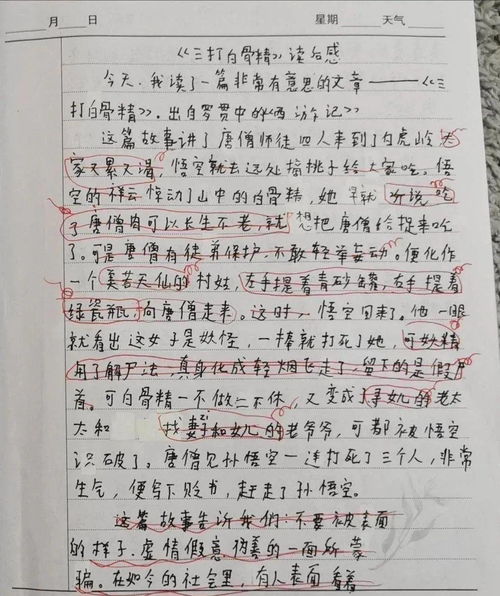 月 日 星期 天气
《三打白骨精》读后感
今天,我读了一篇非常有意思的文章——《三
打白骨精》.出自罗贯中的《西游记》
这篇故事讲了唐僧师徒四人来到了白虎岭老
家又累又渴,悟空就去远处摘桃子给大家吃。悟
空的祥云惊动了山中的白骨精,她早就听说吃
了唐僧肉可以长生不老,就想把唐僧给捉来吃
了。可是唐僧有徒弟保护.不敢轻举妄动。便化作
一个美若天仙的村姑,左手提着青砂罐,右手提着
绿瓷瓶,向唐僧走来。这时,悟空回来了。他一眼
就看出这女子是妖怪,一棒就打死了她,可妖精
用了解尸法,真身化成轻烟飞走了,留下的是假尸
首。可白骨精一不做二不休,又变成了寻女儿的老太
太和 找妻子zi和女儿的老爷爷,可都被悟空
识破了。唐僧见孙悟空一连打死了三个人,非常
生气,便写下贬书,赶走了孙悟空。
这篇故事告诉我们:不要被表面
的样子.虚情假意 伪善的一面所蒙
骗。在如今的社会里,有人表面看着